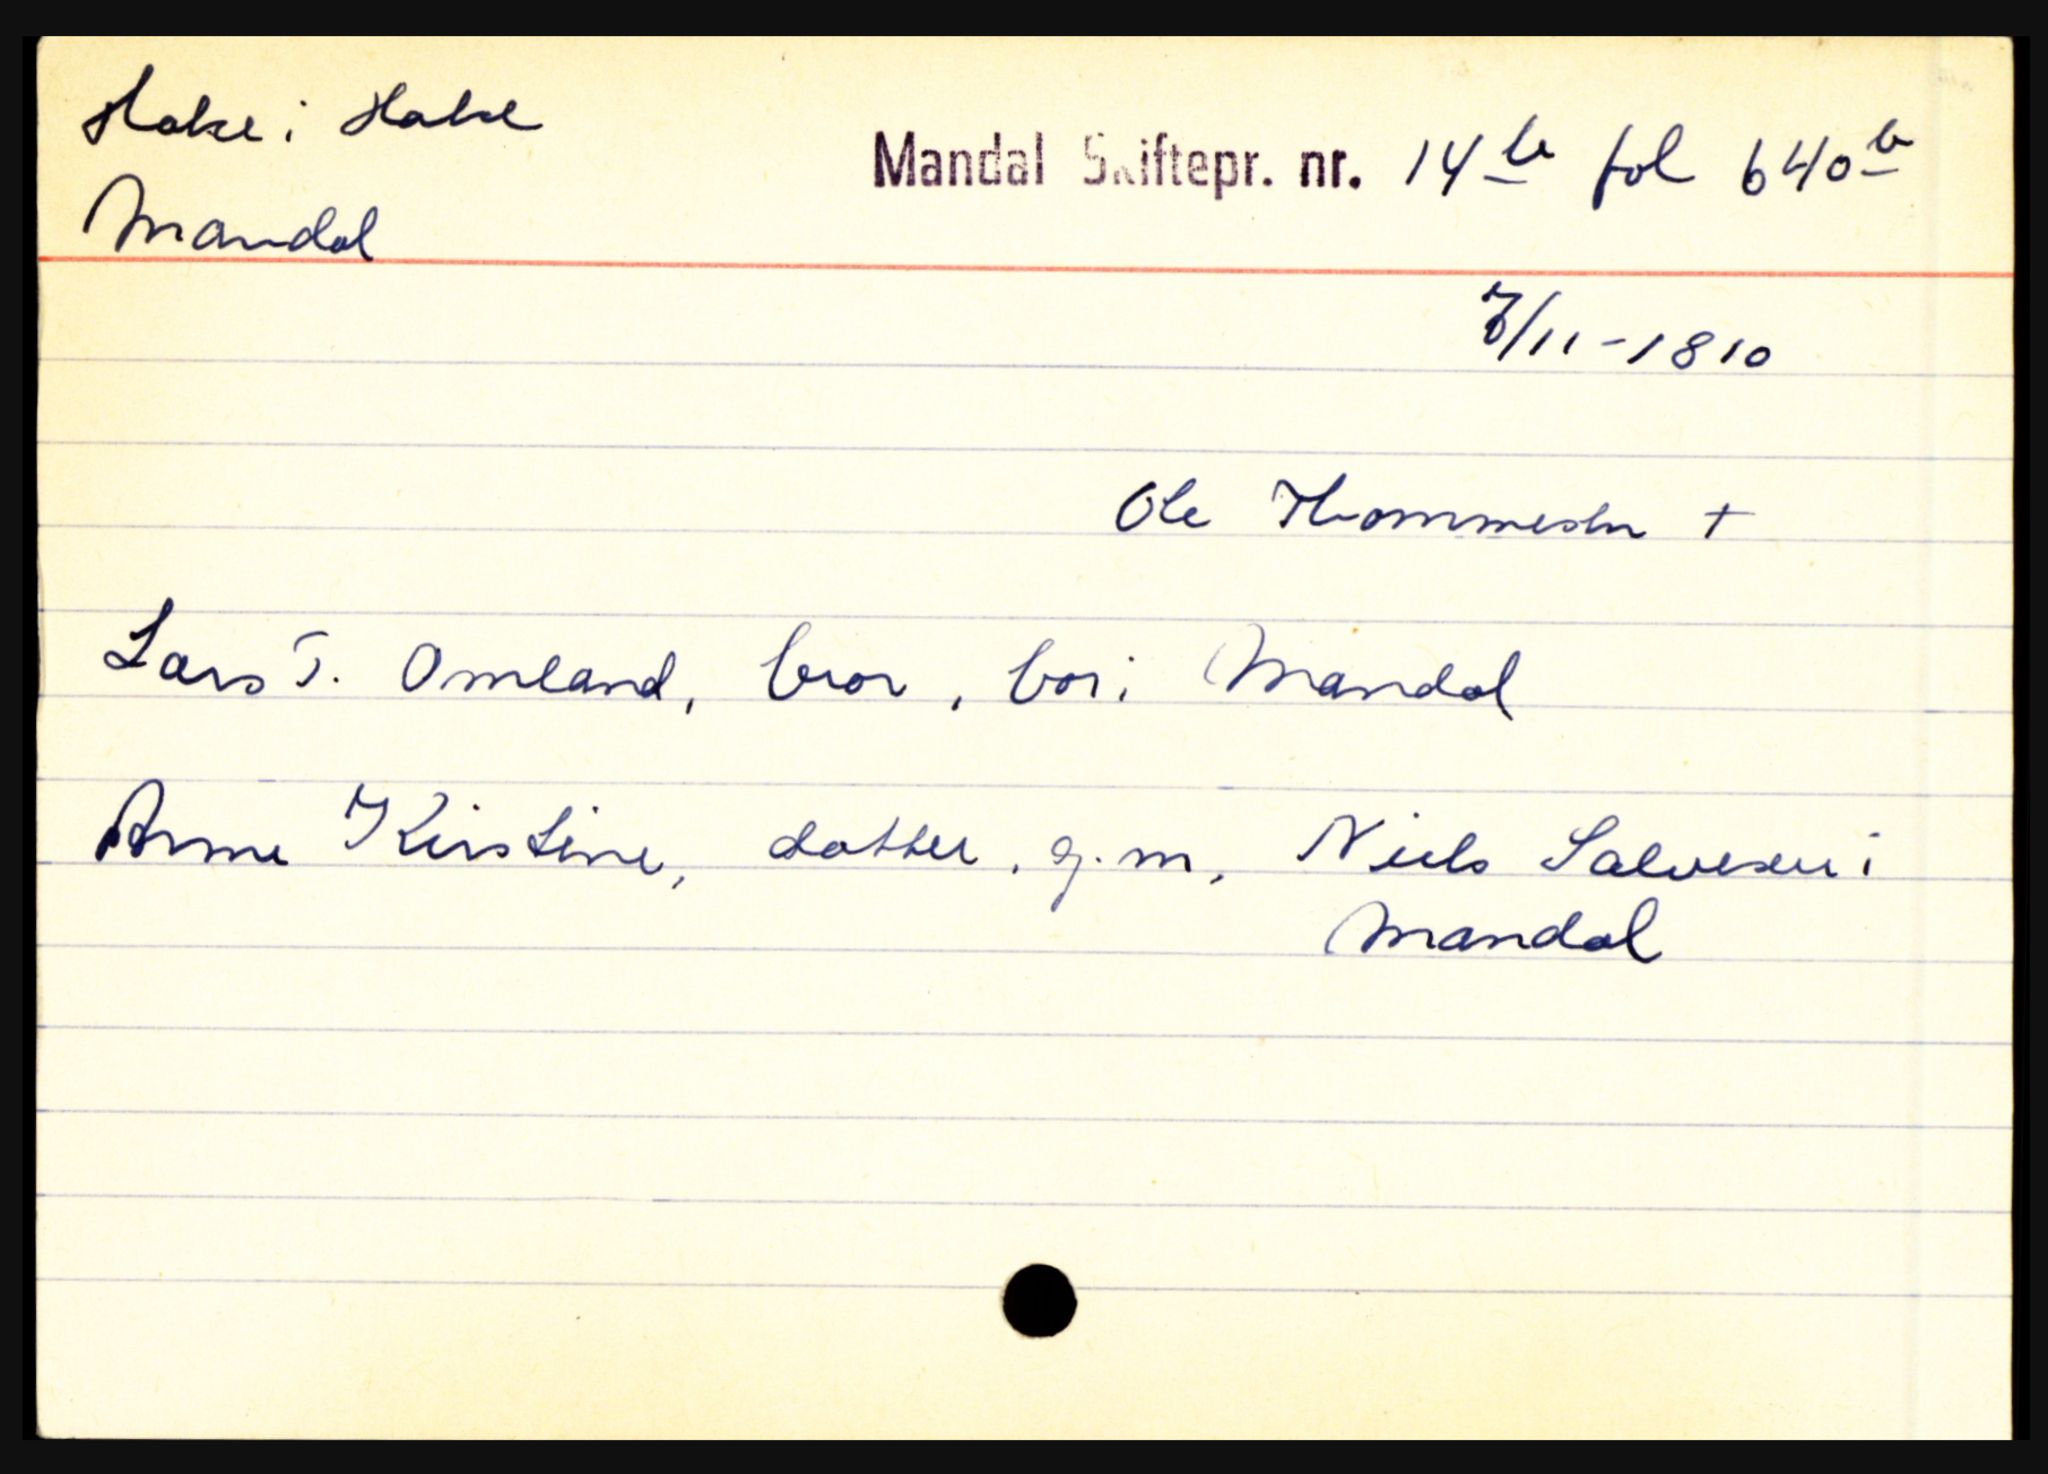 Halse i Halse
Mandal Skiftepr. nr. 14 b fol 640 b
Mandal
7/11-1810
Ole Thommesen +
Lars T. Omland, bror, bor i Mandal
Anne Kirstine, datter, g.m, Niels Salvesen i
Mandal